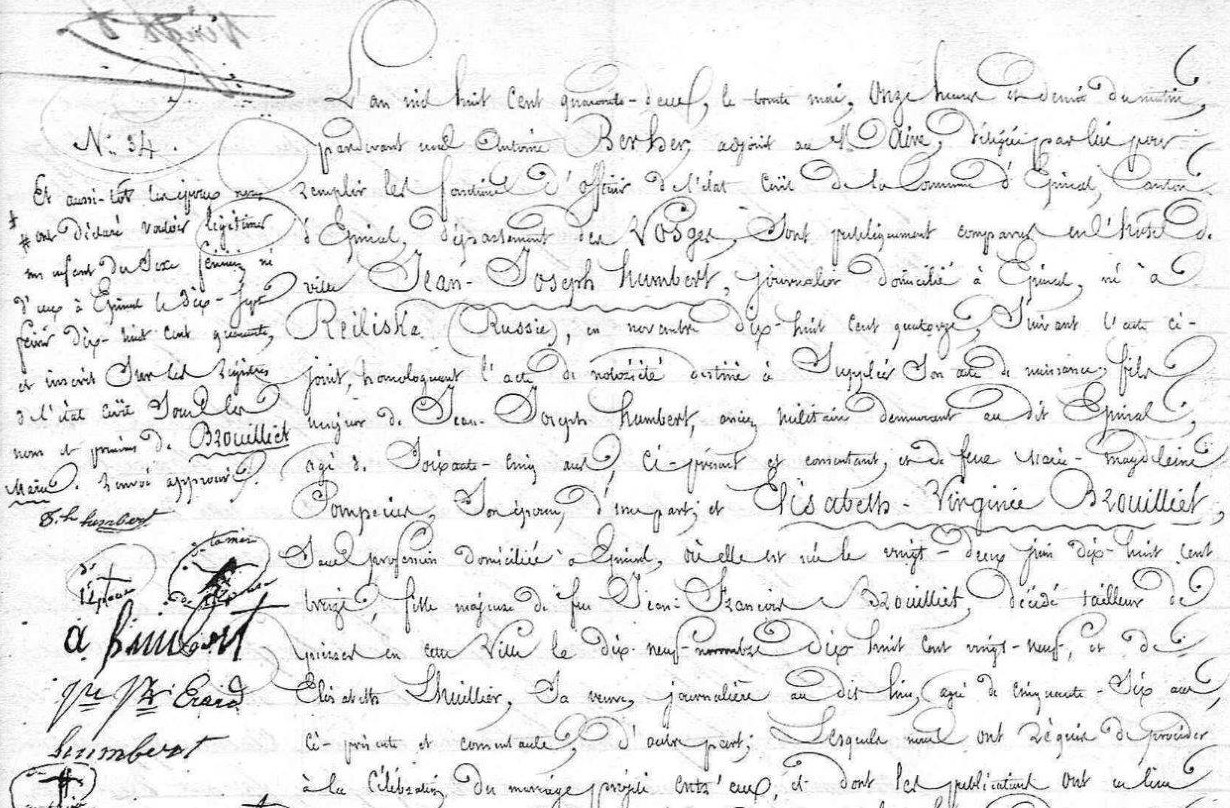 N° 34.
Et aussi-tôt les époux nous
ont déclaré vouloir légitimer
un enfant du Sexe féminin né
d'eux à Epinal le dix-sept
février dix-huit cent quarante,
et inscrit Sur les Registres
de l'état civil Sous les
nom et prénoms de Brouilliet
Marie. Renvoi approuvé.
humbert
L'an mil huit Cent quarante-deux, le trente mai, Onze heures et demie du matin,
pardevant nous Antoine Berher, adjoint au Maire, délégué par lui pour
remplir les fonctions d'officier de l'état Civil de la Commune d'Epinal, Canton
d'Epinal, département des Vosges, Sont publiquement comparus en l'hôtel de
ville Jean-Joseph humbert, journalier domicilié à Epinal, né à
Reiliska (Russie), en novembre dix-huit cent quatorze, Suivant l'acte ci-
joint, homologuant l'acte de notoriété destiné à Suppléer Son acte de naissance; fils
majeur de Jean-Joseph humbert, ancien militaire demeurant au dit Epinal,
agé de Soixante-cinq ans, Ci-présent et consentant, et de feue Marie-Magdeleine
Son épouse, d'une part; et Elisabeth-Virginie Brouilliet,
Sans profession domiciliée à Epinal, où elle est née le vingt-deux juin dix-huit cent
treize, fille majeure de feu Jean-François Brouilliet, décédé tailleur de
pierres en cette Ville le dix-neuf novembre dix huit cent vingt-neuf, et de
Elisabeth Lhuillier, Sa veuve, journalière au dit lieu, agée de cinquante-Six ans,
Ci-présente et consentante, d'autre part; Lesquels nous ont Requis de procéder
à la Célébration du mariage projeté entr'eux, et dont les publications ont eu lieu
a humbert
Erard
humbert